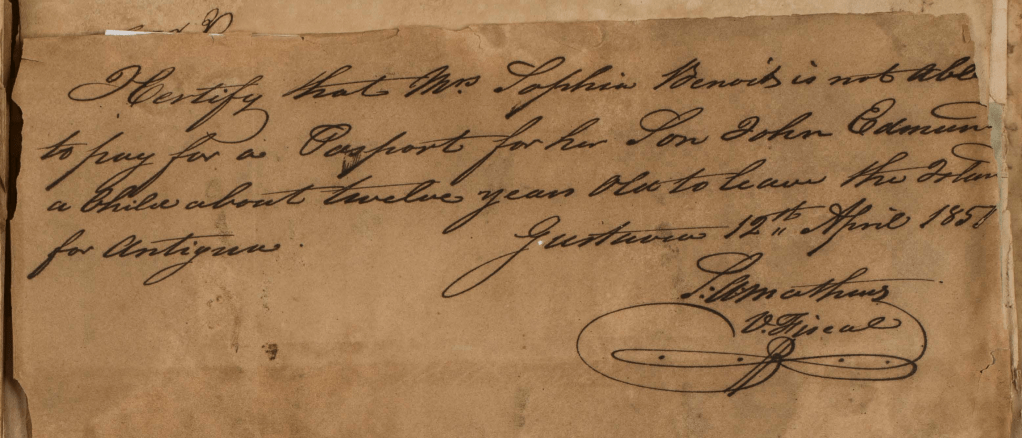 I Certify that Mrs Sophia Benoit is not Able
to pay for a Passport for her Son John Edmun
a Child about twelve years Old to leave the Islan
for Antigua.
Gustavia 12th April 185
V. Fiscal